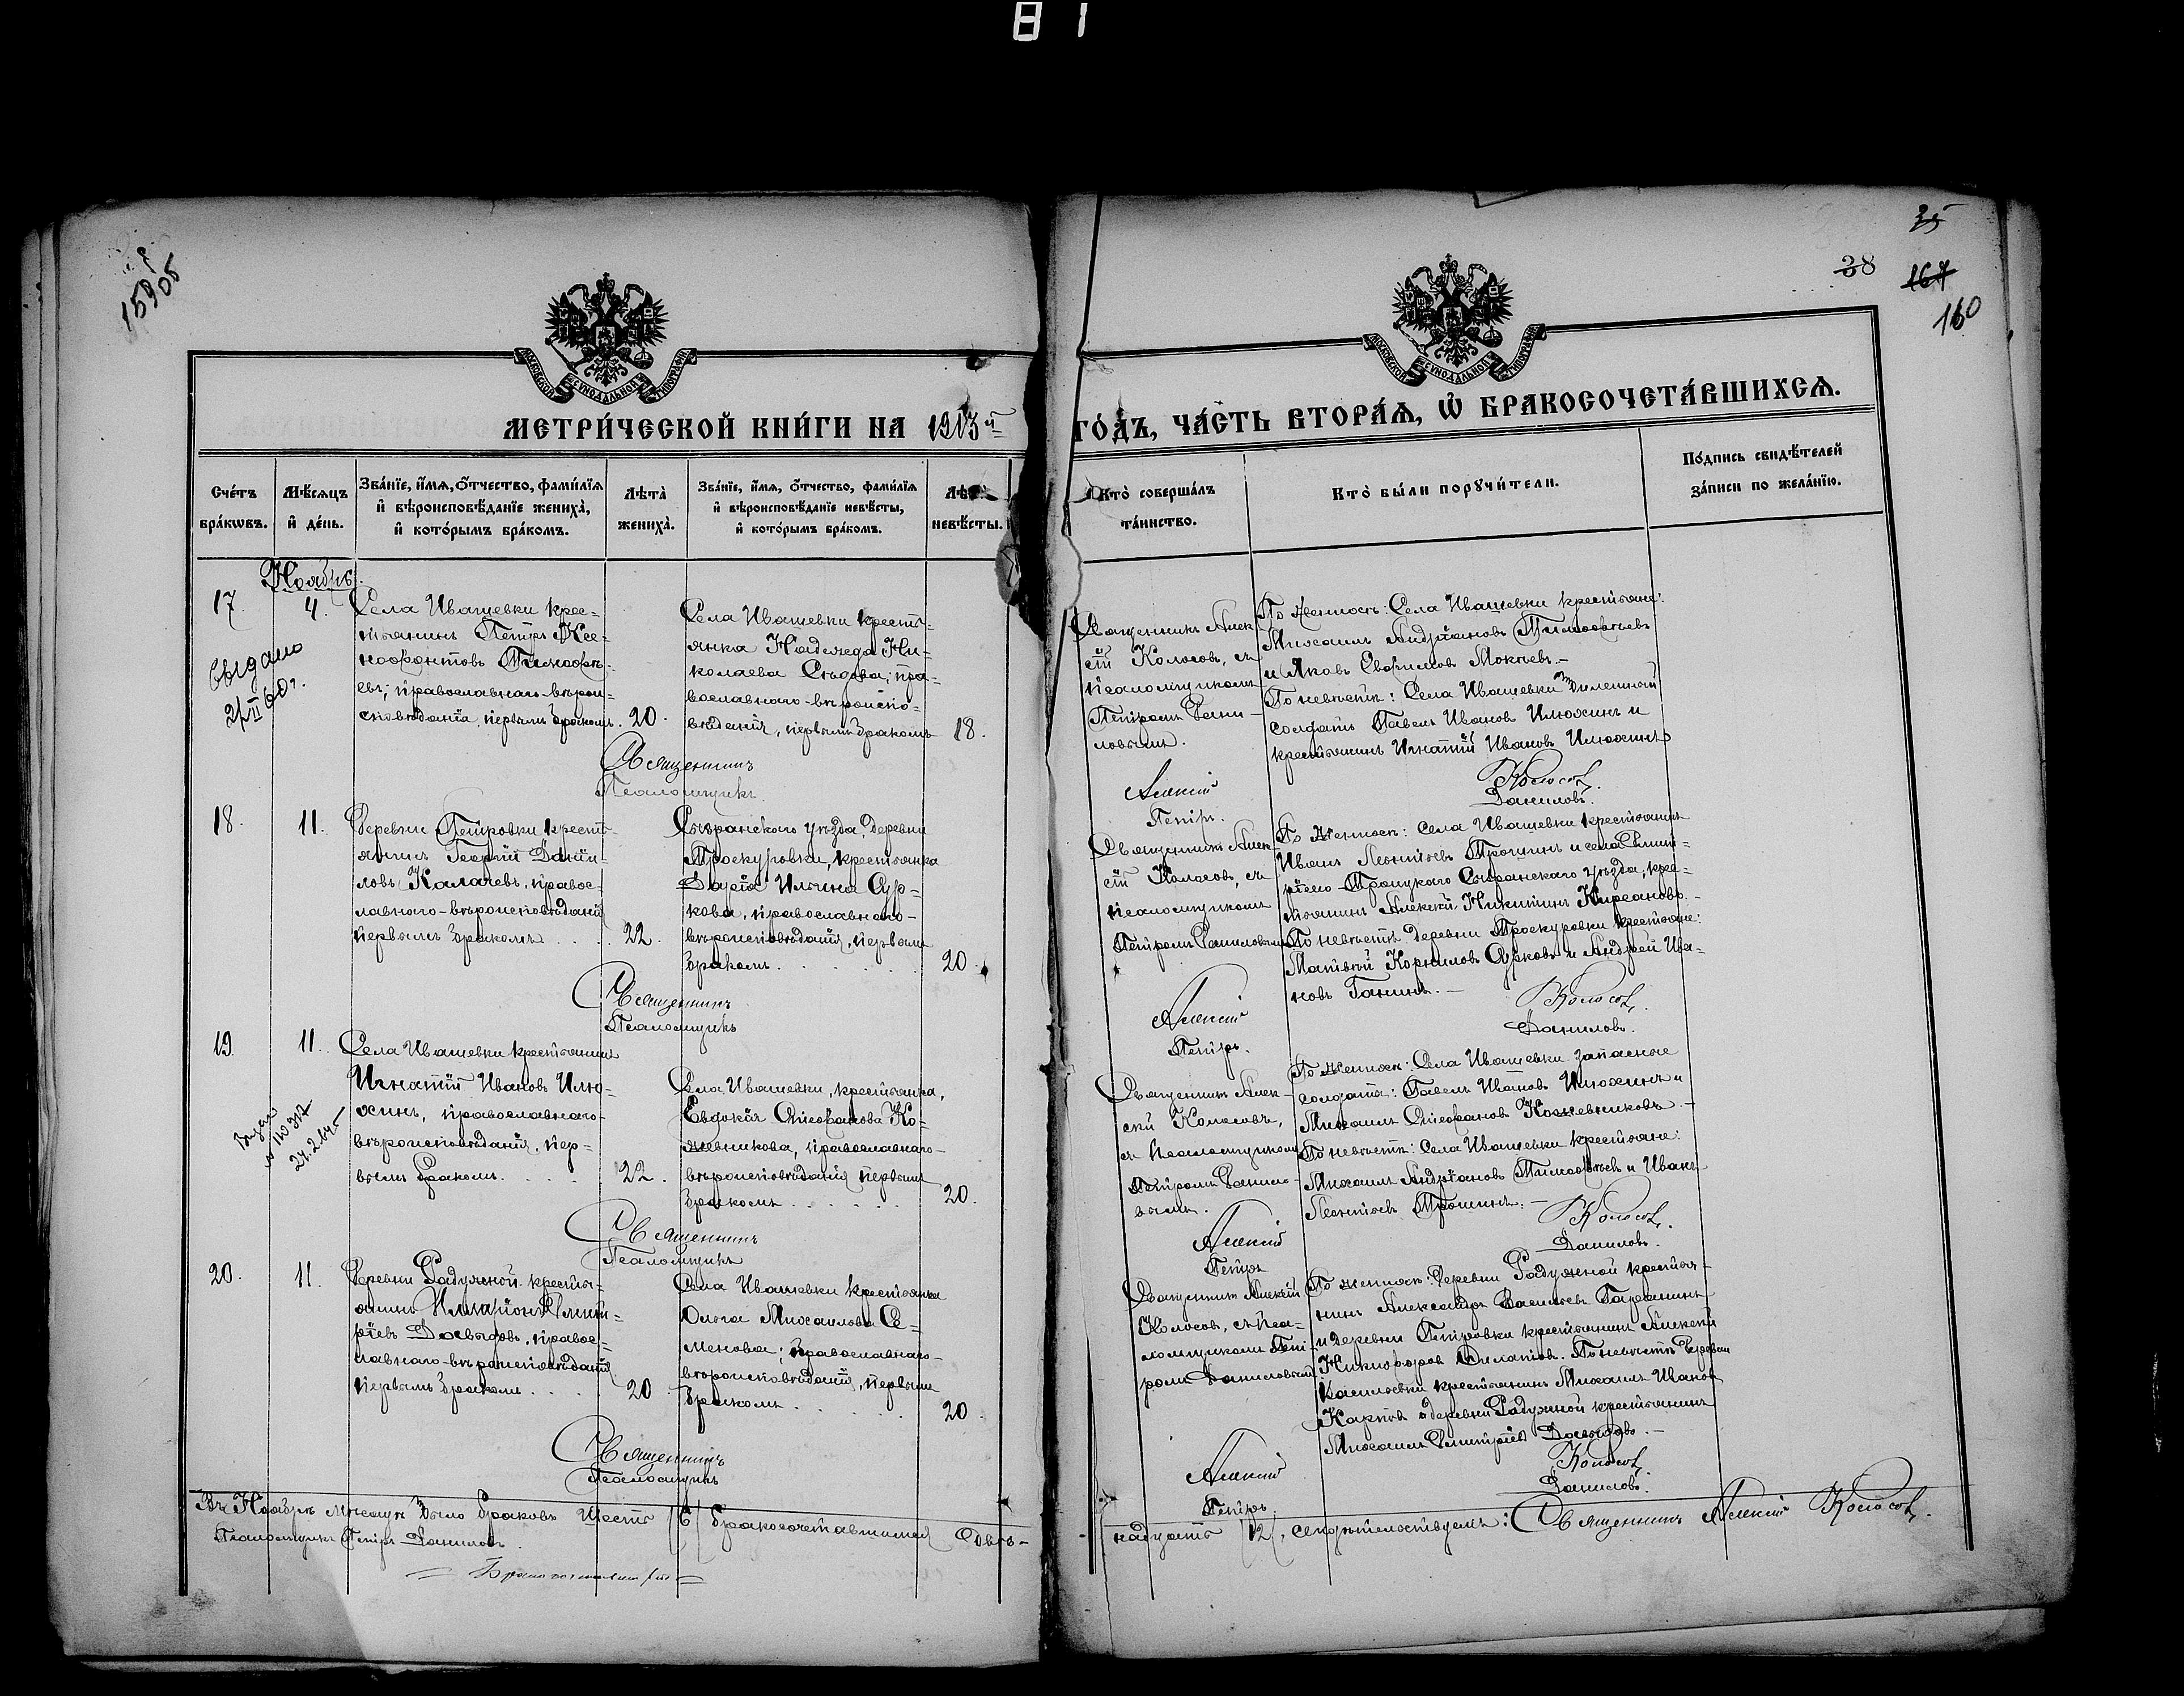 81
15905
35
38
167
160
МОСКОВСКОЙ СѴНОДАЛЬНОЙ ТИПОГРАФІИ
МОСКОВСКОЙ СѴНОДАЛЬНОЙ ТИПОГРАФІИ
МЕТРИ́ЧЕСКОЙ КНИ́ГИ НА 1913й ГО́ДЪ, ЧА́СТЬ ВТОРА́Ѧ, Ѡ҆ БРАКОСОЧЕТА́ВШИХСѦ.
Сче́тъ бра́кωвъ.
Мѣ́сѧцъ и҆ де́нь.
Зва́нїе, и҆́мѧ, ѻ҆́тчество, фами́лїѧ и҆ вѣроисповѣ́данїе жениха̀, и҆ кото́рымъ бра́комъ.
Лѣта̀ жениха̀.
Зва́нїе, и҆́мѧ, ѻ҆́тчество, фами́лїѧ и҆ вѣроисповѣ́данїе невѣ́сты, и҆ кото́рымъ бра́комъ.
Лѣта̀ невѣ́сты.
Кто̀ соверша́лъ та́инство.
Кто̀ бы́ли порꙋчи́тели.
По́дпись свидѣ́телей за́писи по жела́нїю.
Ноябрь.
17.
4.
Выдано
2/II 60 г.
Села Ивашевки крес=
тьянинъ Петръ Ксе=
нофонтовъ Тимофѣ=
евъ; православнаго-вѣрои=
сповѣданія, первымъ бракомъ.
20.
Села Ивашевки кресть=
янка Надежда Ни=
колаева Сѣдова; пра=
вославнаго-вѣроиспо=
вѣданія, первымъ бракомъ
18.
Священникъ Алек
сій Колосов, съ
псаломщикомъ
Петромъ Дани-
ловымъ.
По женихѣ: Села Ивашевки крестьяне:
Михаилъ Андріановъ Тимофѣевъ
и Яковъ Евфимовъ Мокѣевъ.-
По невѣстѣ: Села Ивашевки
солдатъ Павелъ Ивановъ Илюхинъ и
крестьянинъ Игнатій Ивановъ Илюхинъ
Священникъ Алексій Колосовъ.
Псаломщикъ Петръ. Даниловъ.
18.
11.
Деревни Петровки кресть-
янинъ Георгій Дани-
ловъ Калачевъ, правос=
лавнаго-вѣроисповѣданія
первымъ бракомъ
22.
Сызранскаго уѣзда, деревни
Проскуровки, крестьянка
Дарія Ильина Сур=
кова, православнаго-
вѣроисповѣданія, первымъ
бракомъ.
20.
Священникъ Алек-
сій Колосов, съ
псаломщикомъ
Петромъ Даниловымъ
По женихѣ: Села Ивашевки крестьянинъ
Иванъ Леонтьевъ Трошинъ и села Дмит=
ріево-Троицкаго Сызранскаго уѣзда, кре=
стьянинъ Алексѣй Никитинъ Кирсановъ.-
По невѣстѣ: деревни Проскуровки крестьяне:
Матвѣй Корниловъ Сурковъ и Андрей Ива=
новъ Ганинъ.-
Священникъ Алексій Колосовъ.
Псаломщикъ Петръ. Даниловъ.
19
11.
24.2.645
Села Ивашевки крестьянинъ
Игнатій Ивановъ Илю=
хинъ, православнаго-
вѣроисповѣданія, пер=
вымъ бракомъ.
22.
Села Ивашевки, крестьянка,
Евдокія Стефанова Ко=
жевникова, православнаго-
вѣроисповѣданія первымъ
бракомъ
20.
Священникъ Алек-
сій Колосовъ,
съ псаломщикомъ
Петромъ Данило-
вымъ.
По женихѣ: Села Ивашевки запасные
солдаты: Павелъ Ивановъ Илюхинъ и
Михаилъ Стефановъ Кожевниковъ.-
По невѣстѣ: Села Ивашевки крестьяне:
Михаилъ Андріановъ Тимофѣевъ и Иванъ
Леонтьевъ Трошинъ.-
Священникъ Алексій Колосовъ.
Псаломщикъ Петръ Даниловъ.
20.
11.
Деревни Радужной крестья-
янинъ Илларіонъ Дмит=
ріевъ Давыдовъ, правос=
лавнаго-вѣроисповѣданія
первымъ бракомъ
20
Села Ивашевки крестьянка
Ольга Михаилова Се=
менова; православнаго-
вѣроисповѣданія, первымъ
бракомъ.
20.
Священникъ Алексій
Колосов, съ пса=
ломщикомъ Пет-
ромъ Даниловымъ
По женихѣ: Деревни Радужной крестья-
нинъ Александръ Васильевъ Гаранинъ
и деревни Петровки крестьянинъ Алексѣй
Никифоровъ Филатовъ. По невѣстѣ: деревни
крестьянинъ Михаилъ Ивановъ
Карповъ и деревни Радужной крестьянинъ
Михаилъ Дмитріевъ Давыдовъ.-
Священникъ Алексій Колосовъ.
Псаломщикъ Петръ Даниловъ.
Въ Ноябрѣ мѣсяцѣ было браковъ шесть /6/ бракосочетавшихся двѣ-
надцать /12/, свидѣтельствуемъ: Священникъ Алексій Колосовъ.
Псаломщикъ Петръ Даниловъ.